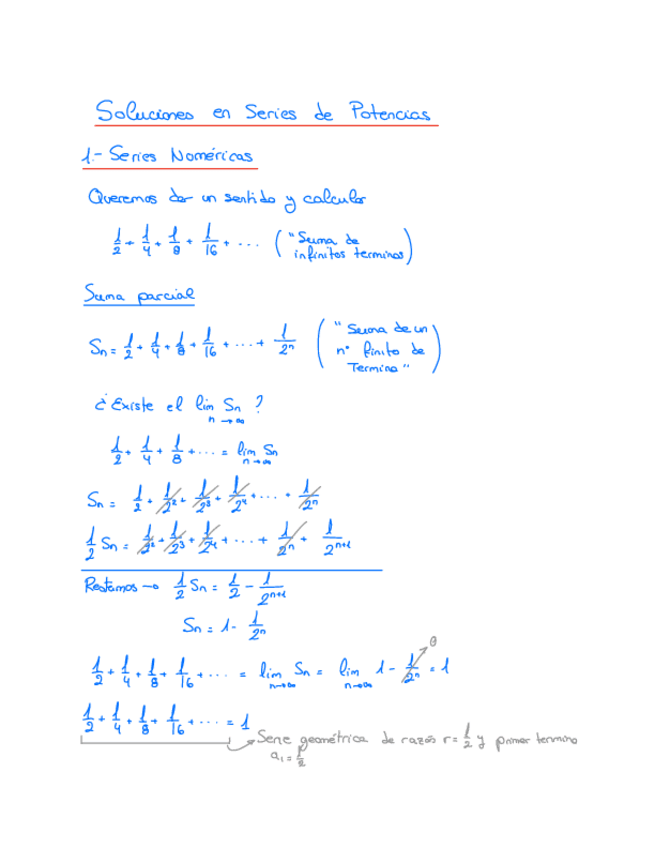 Soluciones en Series de Potencias
1.- Series Noméricas
Queremos dar un sentido y calcular
1/2 + 1/4 + 1/8 + 1/16 + ... ("Suma de infinitos terminos)
Suma parcial
Sn = 1/2 + 1/4 + 1/8 + 1/16 + ... + 1/2^n ("Suma de un nº finito de Termino")
¿Existe el lim Sn ?
n→∞
1/2 + 1/4 + 1/8 + ... = lim n→∞ Sn
Sn = 1/2 + 1/2^2 + 1/2^3 + 1/2^4 + ... + 1/2^n
1/2 Sn = 1/2^2 + 1/2^3 + 1/2^4 + ... + 1/2^n + 1/2^(n+1)
Restamos → 1/2 Sn = 1/2 - 1/2^(n+1)
Sn = 1 - 1/2^n
1/2 + 1/4 + 1/8 + 1/16 + ... = lim n→∞ Sn = lim n→∞ 1 - 1/2^n = 1
0
1/2 + 1/4 + 1/8 + 1/16 + ... = 1
Serie geométrica de razós r = 1/2 y primer termino
a1 = 1/2